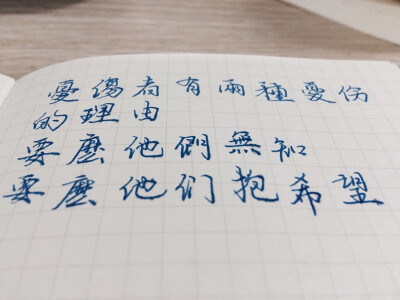 憂傷者有兩種憂伤
的理由
要麽他們無知
要麽他们抱希望